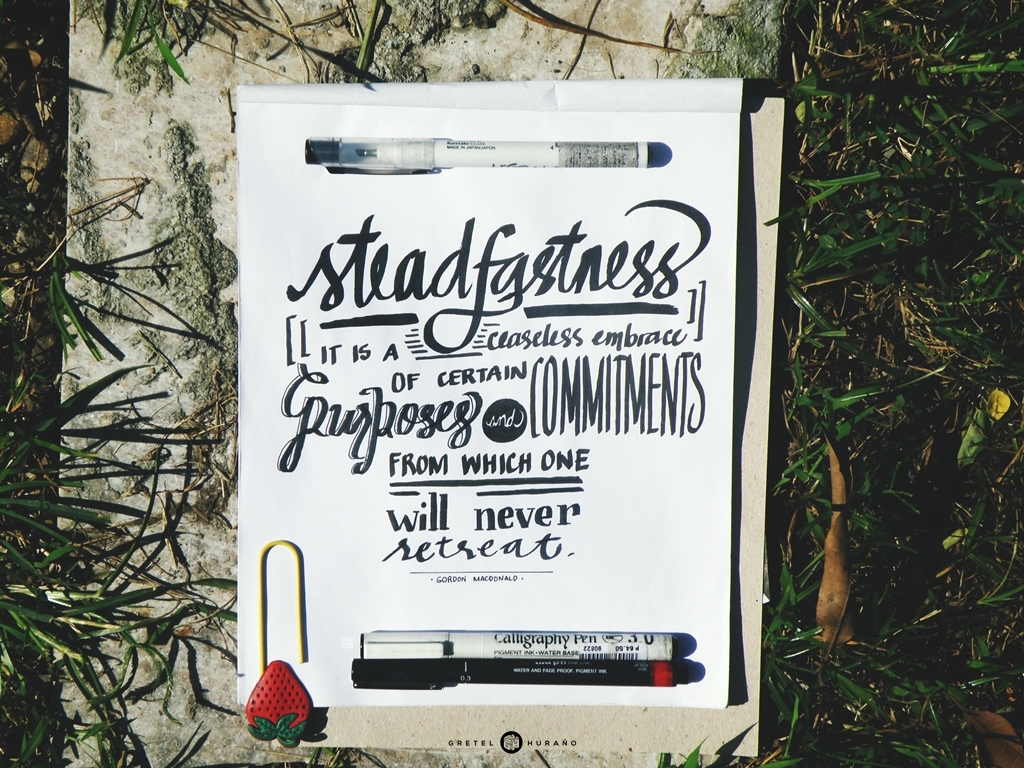 MADE IN JAPAN/JAPON
steadfastness
[[ IT IS A ceaseless embrace ]]
OF CERTAIN
purposes and COMMITMENTS
FROM WHICH ONE
will never
retreat.
· GORDON MACDONALD ·
Calligraphy Pen 3.0
PIGMENT INK · WATER BASE
P 64.50
90622
WATER AND FADE PROOF, PIGMENT INK
0.3
GRETEL HURAÑO